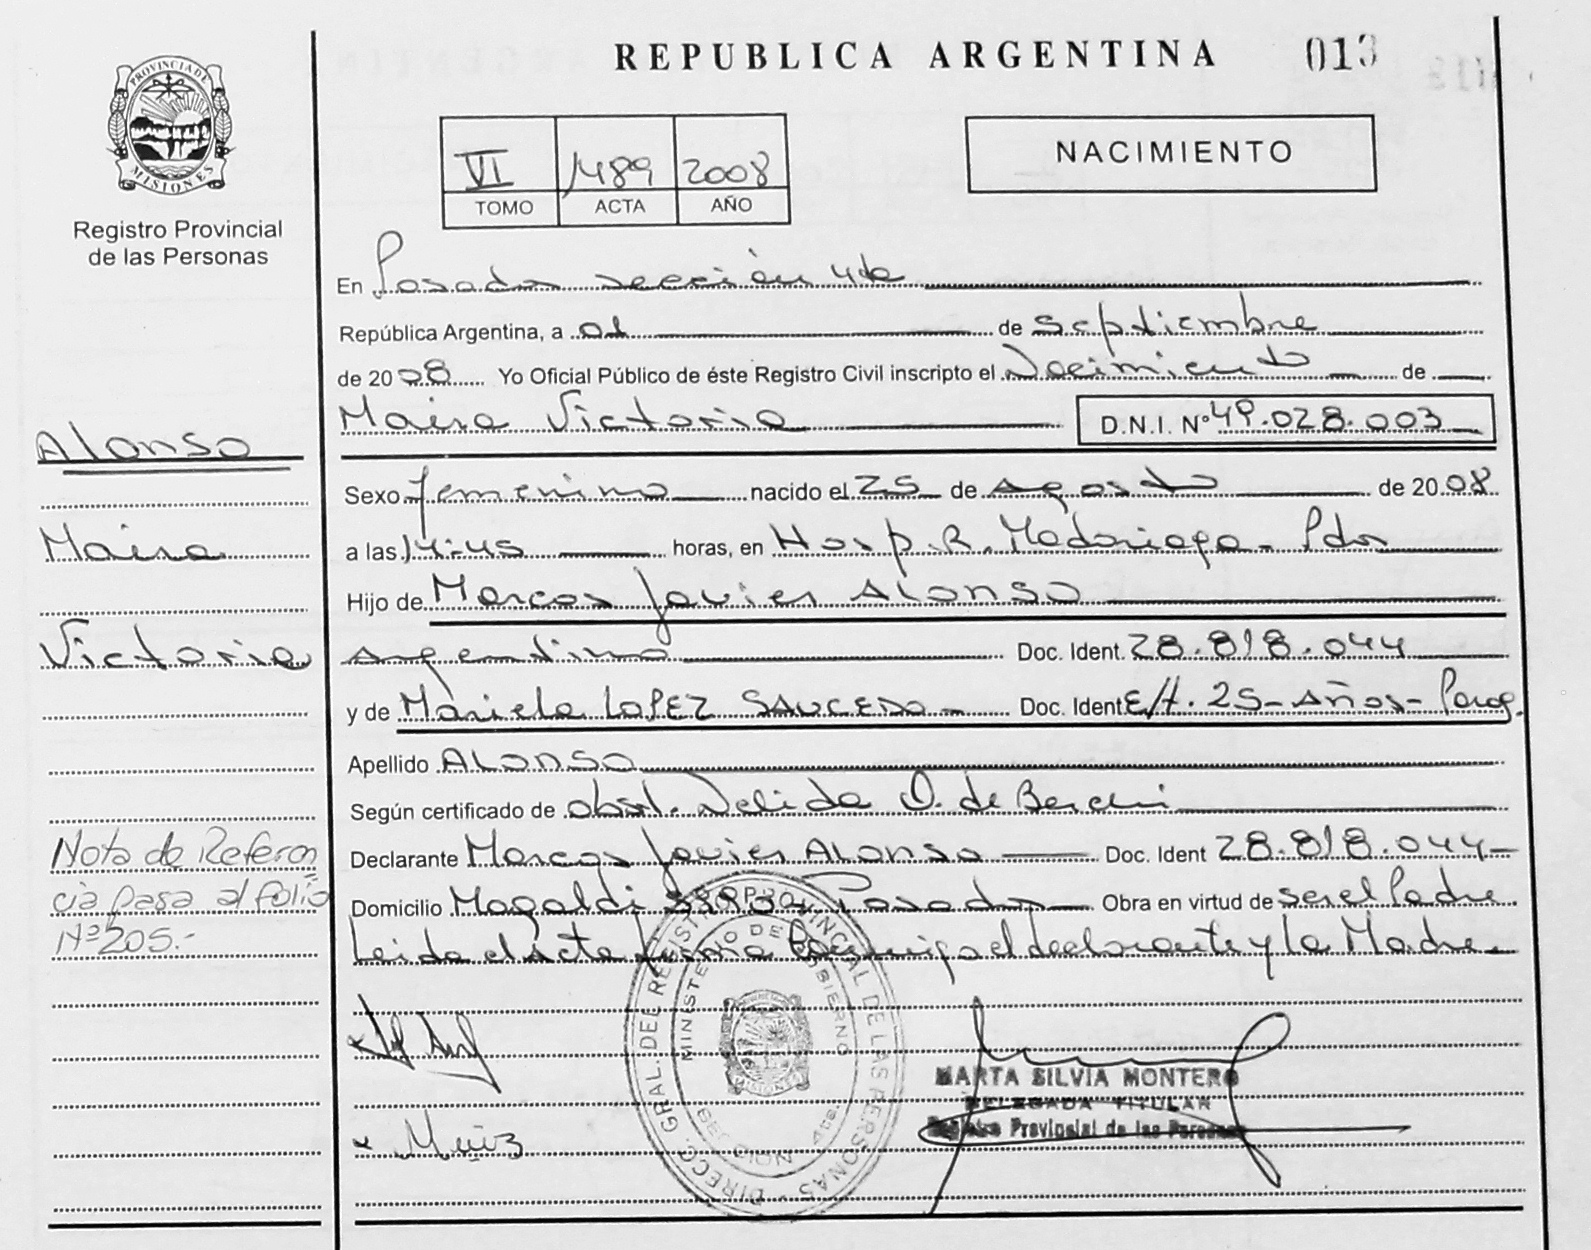 REPUBLICA ARGENTINA 013
PROVINCIA DE
MISIONES
Registro Provincial
de las Personas
VI 1489 2008
TOMO ACTA AÑO
NACIMIENTO
En Posadas sección 4ta
República Argentina, a 01 de septiembre
de 2008 Yo Oficial Público de éste Registro Civil inscripto el Nacimiento de
Maira Victoria D.N.I. Nº 49.028.003
Alonso
Maira
Victoria
Sexo femenino nacido el 25 de Agosto de 2008
a las 14:45 horas, en Hosp. R. Madariaga - Pdas
Hijo de Marcos Javier ALONSO
Argentino Doc. Ident. 28.818.044
y de Mariela LOPEZ SAUCEDO - Doc. Ident E/t. 25 - Años - Parag.
Apellido ALONSO
Según certificado de obst. Nelida O. de
Declarante Marcos Javier ALONSO Doc. Ident 28.818.044
Domicilio Magaldi Posadas Obra en virtud de ser el Padre
Leida el Acta firma conmigo el declarante y la Madre
Nota de Referen
cia pasa al folio
Nº 205.-
DIRECC. GRAL. DEL REGISTRO PROVINCIAL DE LAS PERSONAS
MINISTERIO DE GOBIERNO
SECCION 4ta.
MISIONES
MARTA SILVIA MONTERO
DELEGADA TITULAR
Registro Provincial de las Personas